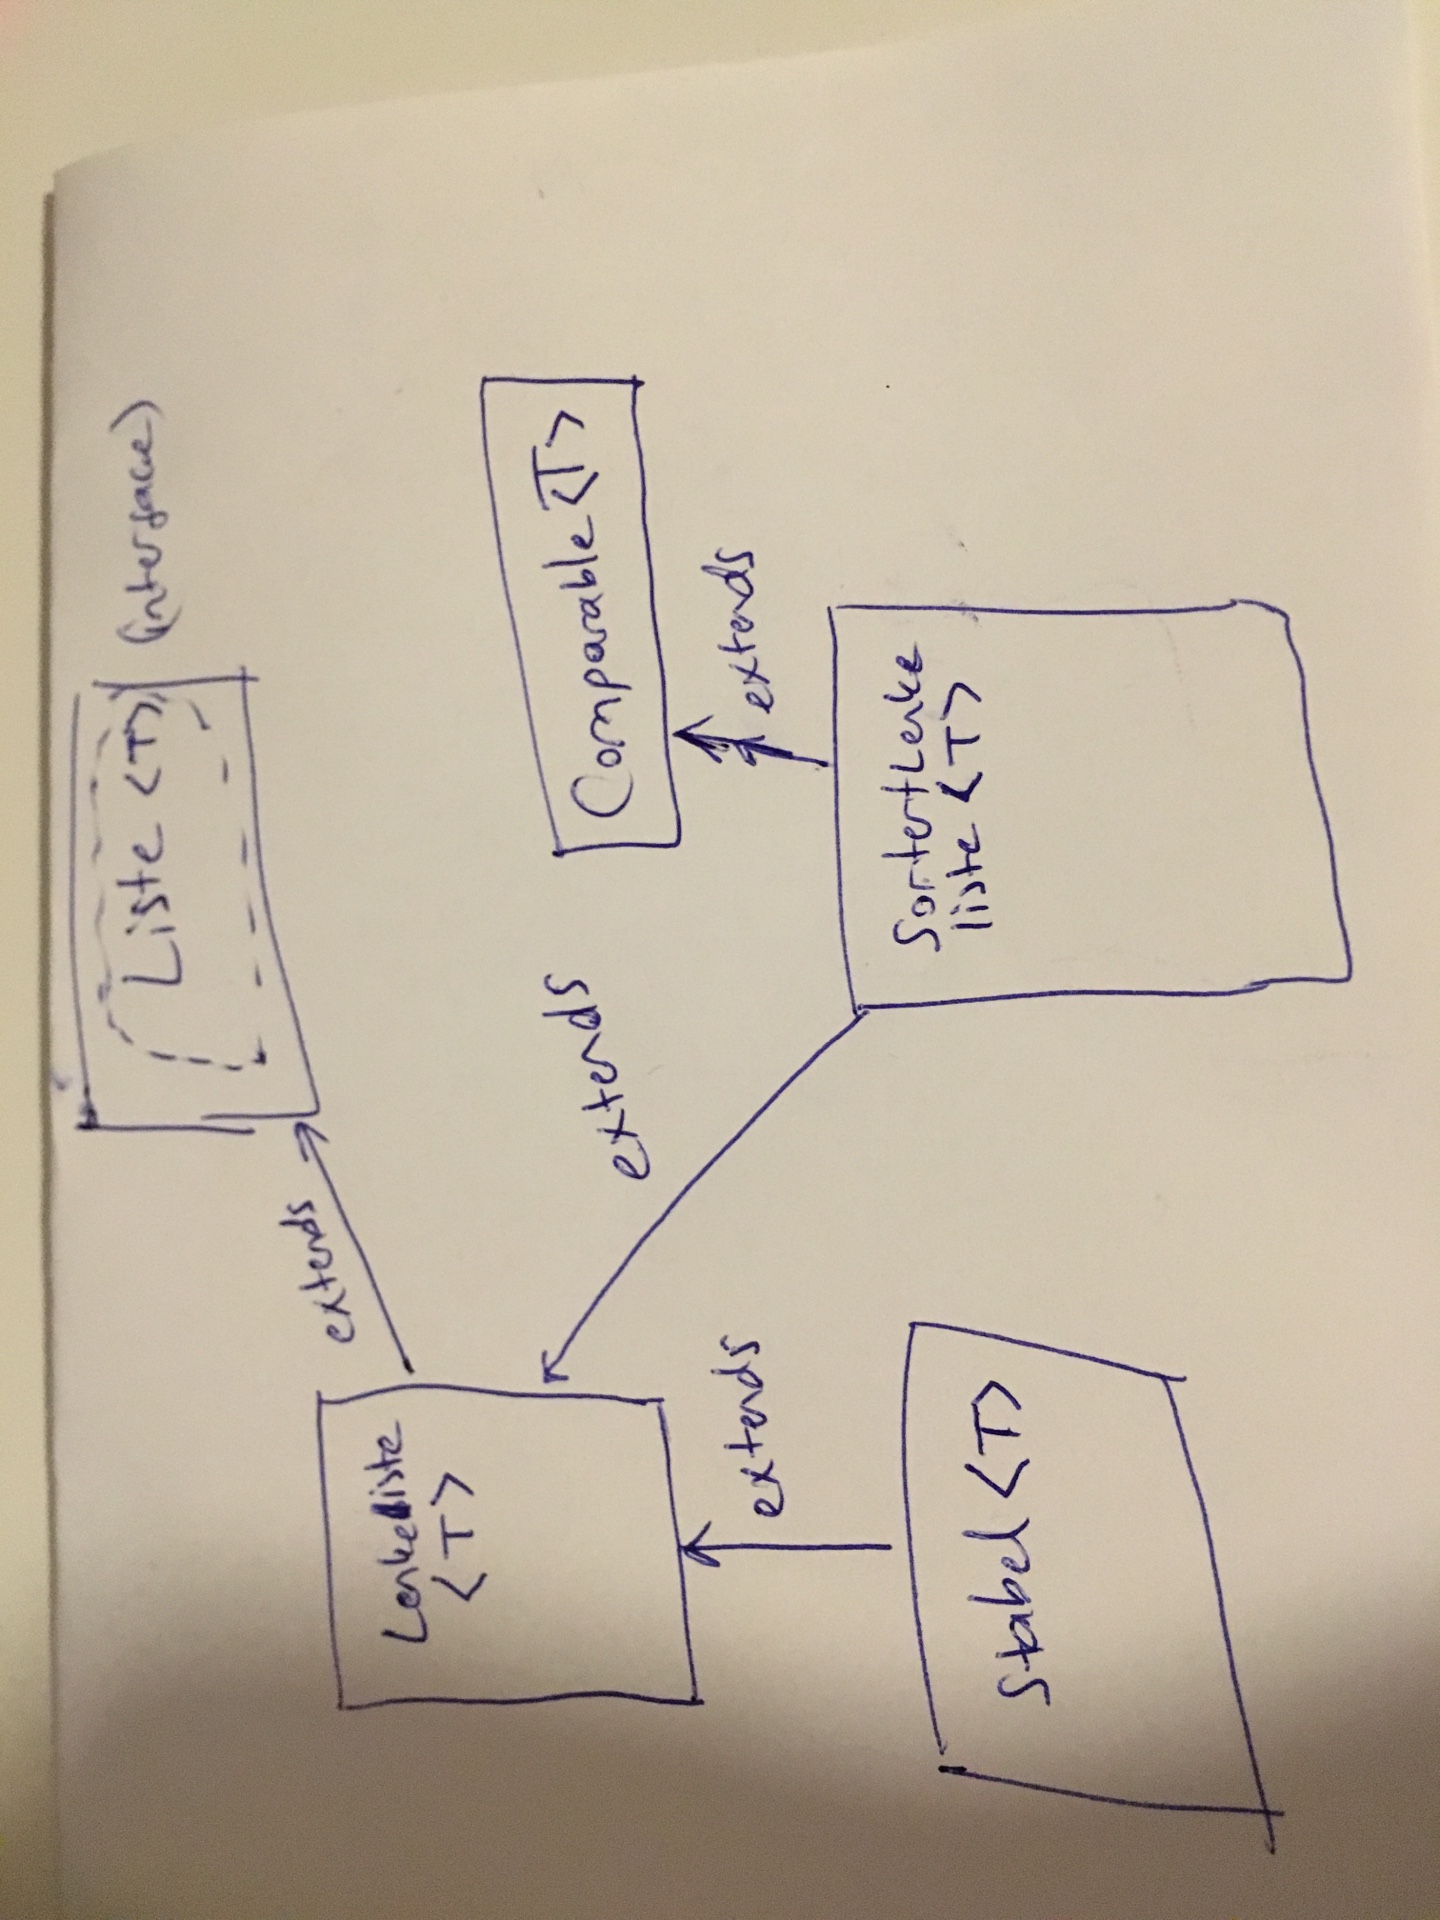 Liste <T>
(interface)
extends
Lenkeliste
<T>
extends
Comparable <T>
extends
extends
Stabel <T>
SortertLenke
liste <T>